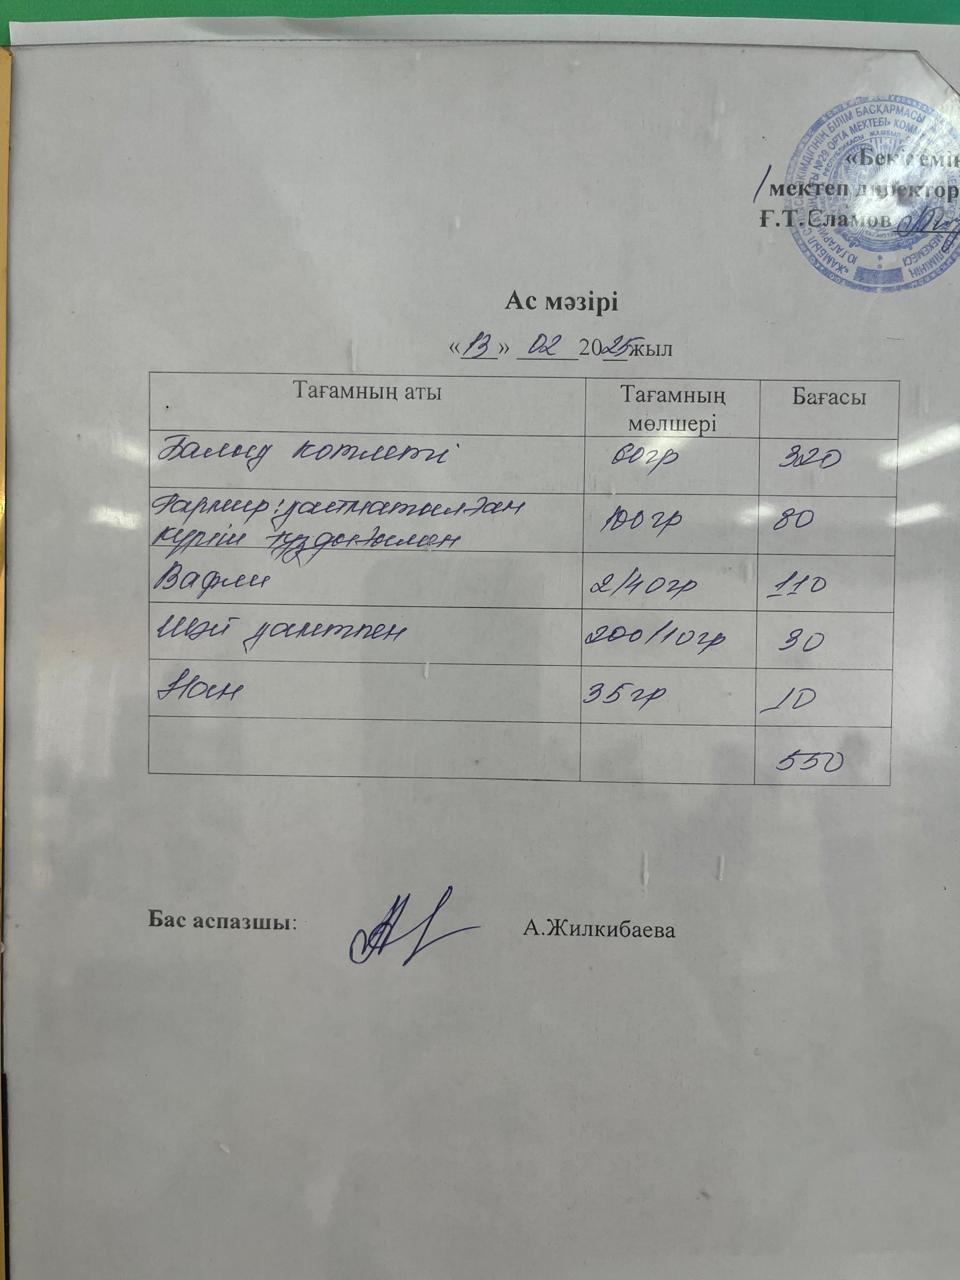 «Бекітемін
мектеп директор
Ғ.Т.Сламов
Ас мәзірі
«13» 02 2025 жыл
Тағамның аты Тағамның мөлшері Бағасы
Балық котлеті 60гр 320
Гарнир: 100гр 80
күріш тұздығымен
Вафли 2/40гр 110
Шай қантпен 200/10гр 30
Нан 35гр 10
550
Бас аспазшы: А.Жилкибаева